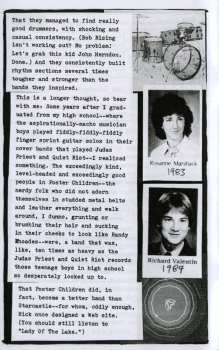 That they managed to find really
good drummers, with shocking and
casual consistency. (Bob Rising
isn't working out? No problem!
Let's grab this kid John Herndon.
Done.) And they consistently built
rhythm sections several times
tougher and stronger than the
bands they inspired.
This is a longer thought, so bear
with me: Some years after I grad-
uated from my high school--where
the aspirationally-macho musician
boys played fiddly-fiddly-fiddly
finger sprint guitar solos in their
cover bands that played Judas
Priest and Quiet Riot--I realized
something. The exceedingly kind,
level-headed and exceedingly good
people in Poster Children--the
nerdy folk who did not adorn
themselves in studded metal belts
and leather everything and walk
around, I dunno, grunting or
brushing their hair and sucking
in their cheeks to look like Randy
Rhoades--were, a band that was,
like, ten times as heavy as the
Judas Priest and Quiet Riot records
those teenage boys in high school
so desperately looked up to.
That Poster Children did, in
fact, become a better band than
Starcastle--for whom, oddly enough,
Rick once designed a Web site.
(You should still listen to
"Lady Of The Lake.")
Rosanne Marshack
1983
Richard Valentin
1984